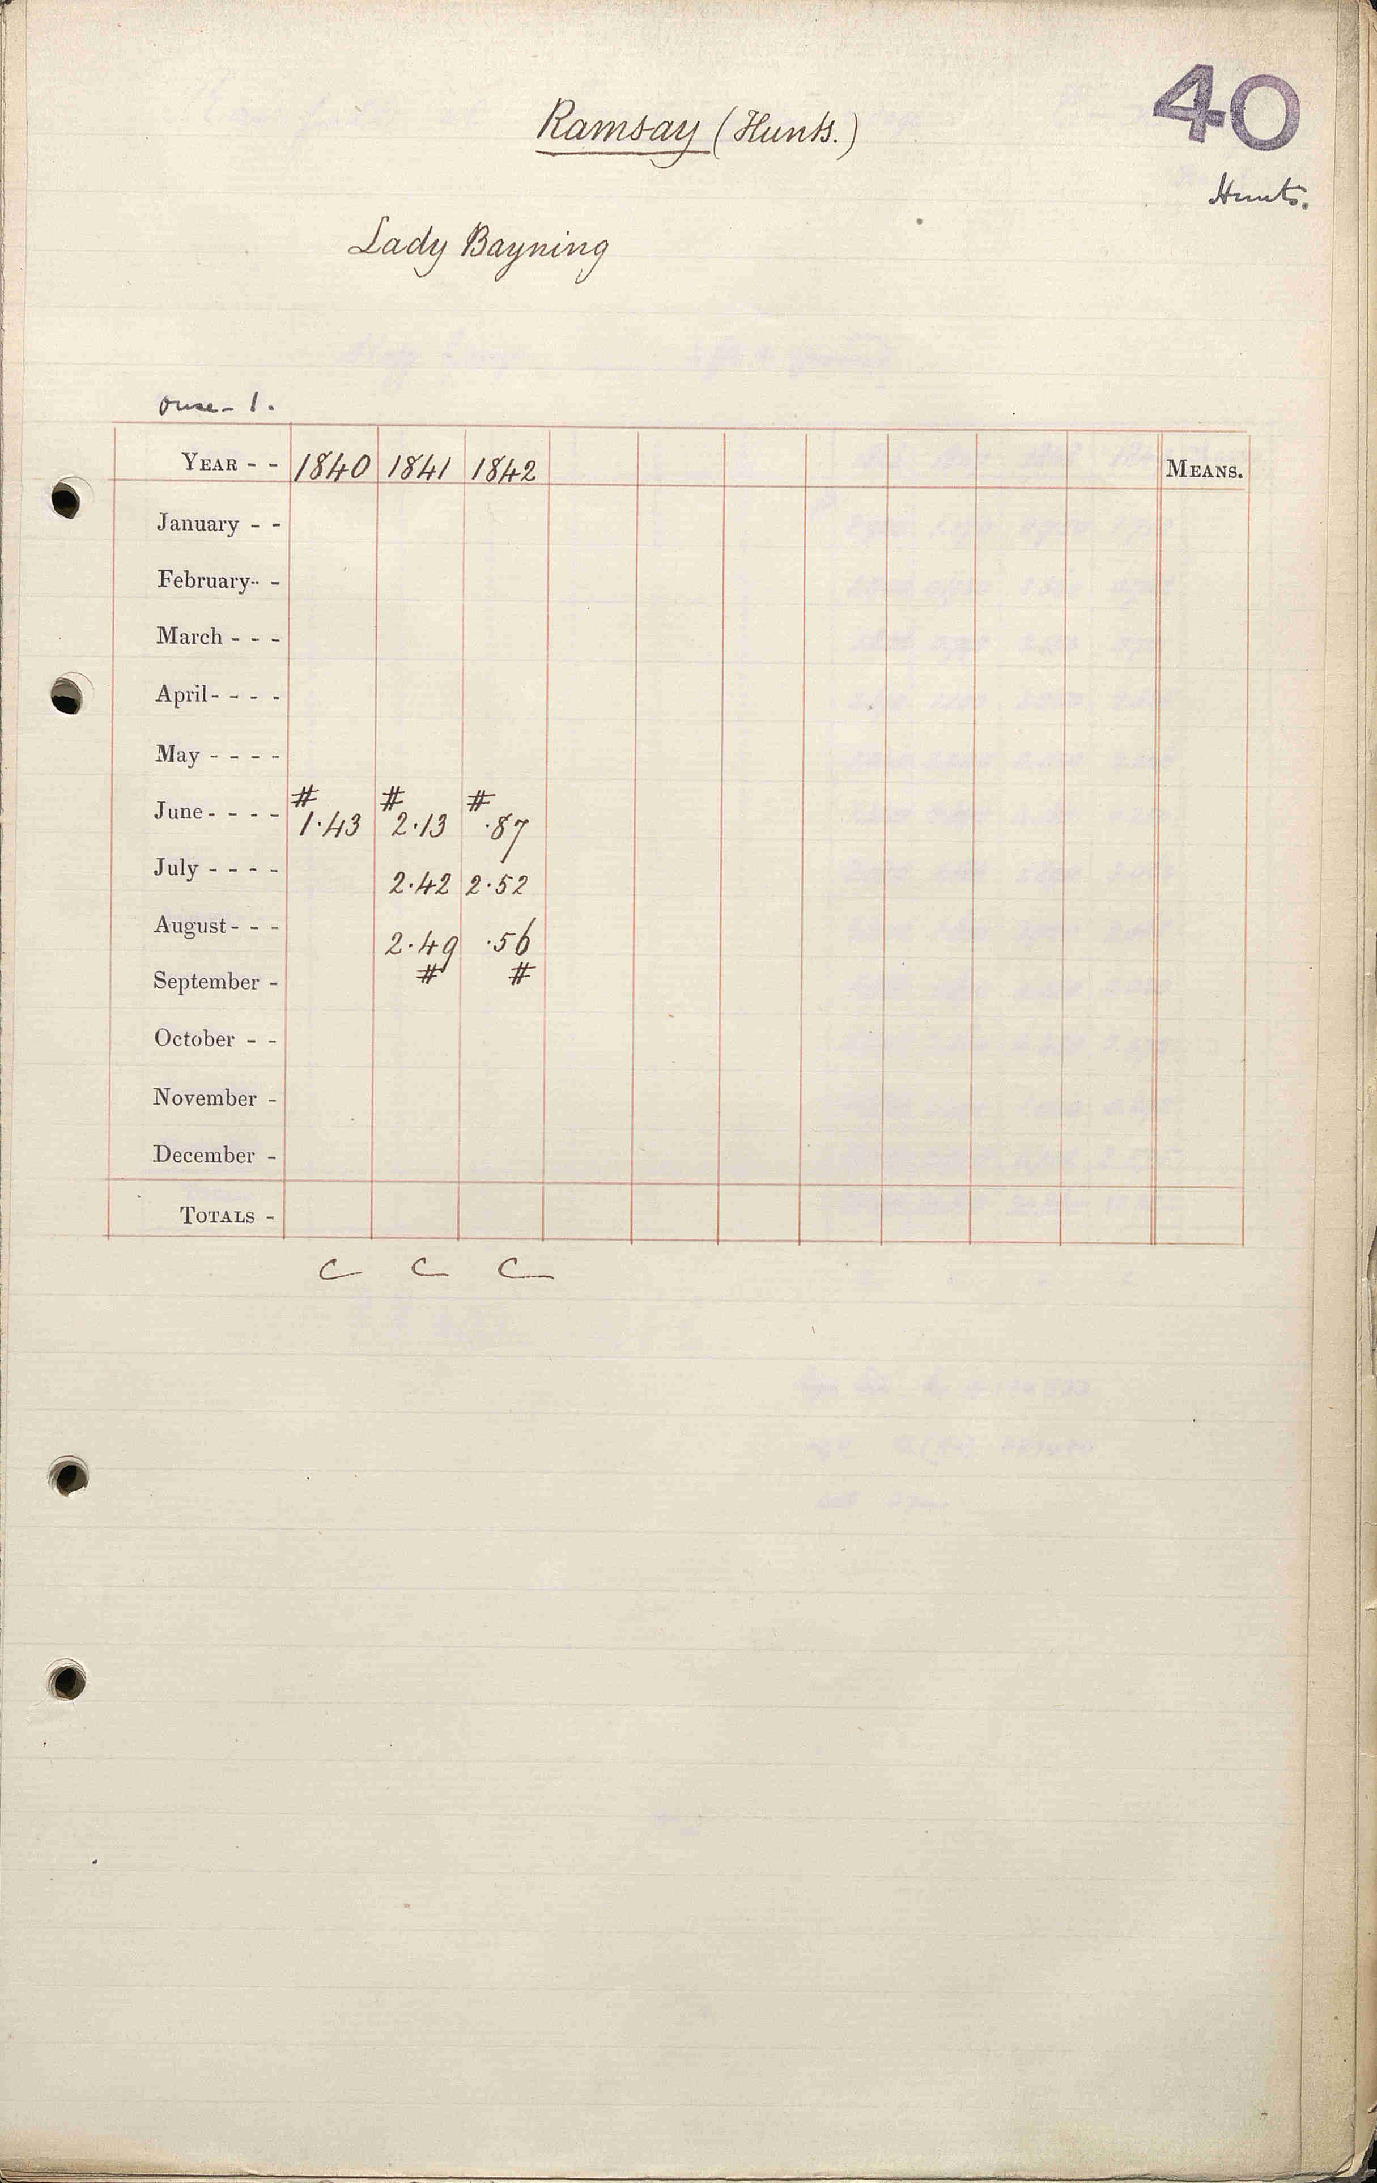 40
Ramsay (Hunts.)
Hunts.
Lady Bayning
Ouse - 1.
YEAR - - 1840 1841 1842 MEANS.
January - -
February - -
March - - -
April - - - -
May - - - -
# # #
June - - - - 1.43 2.13 .87
July - - - - 2.42 2.52
August - - - 2.49 .56
# #
September -
October - -
November -
December -
TOTALS -
C C C